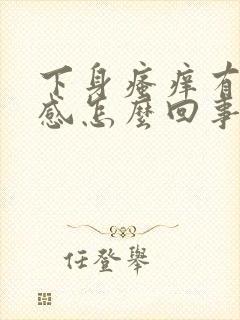 下身瘙痒有
感怎麼回事
任登舉